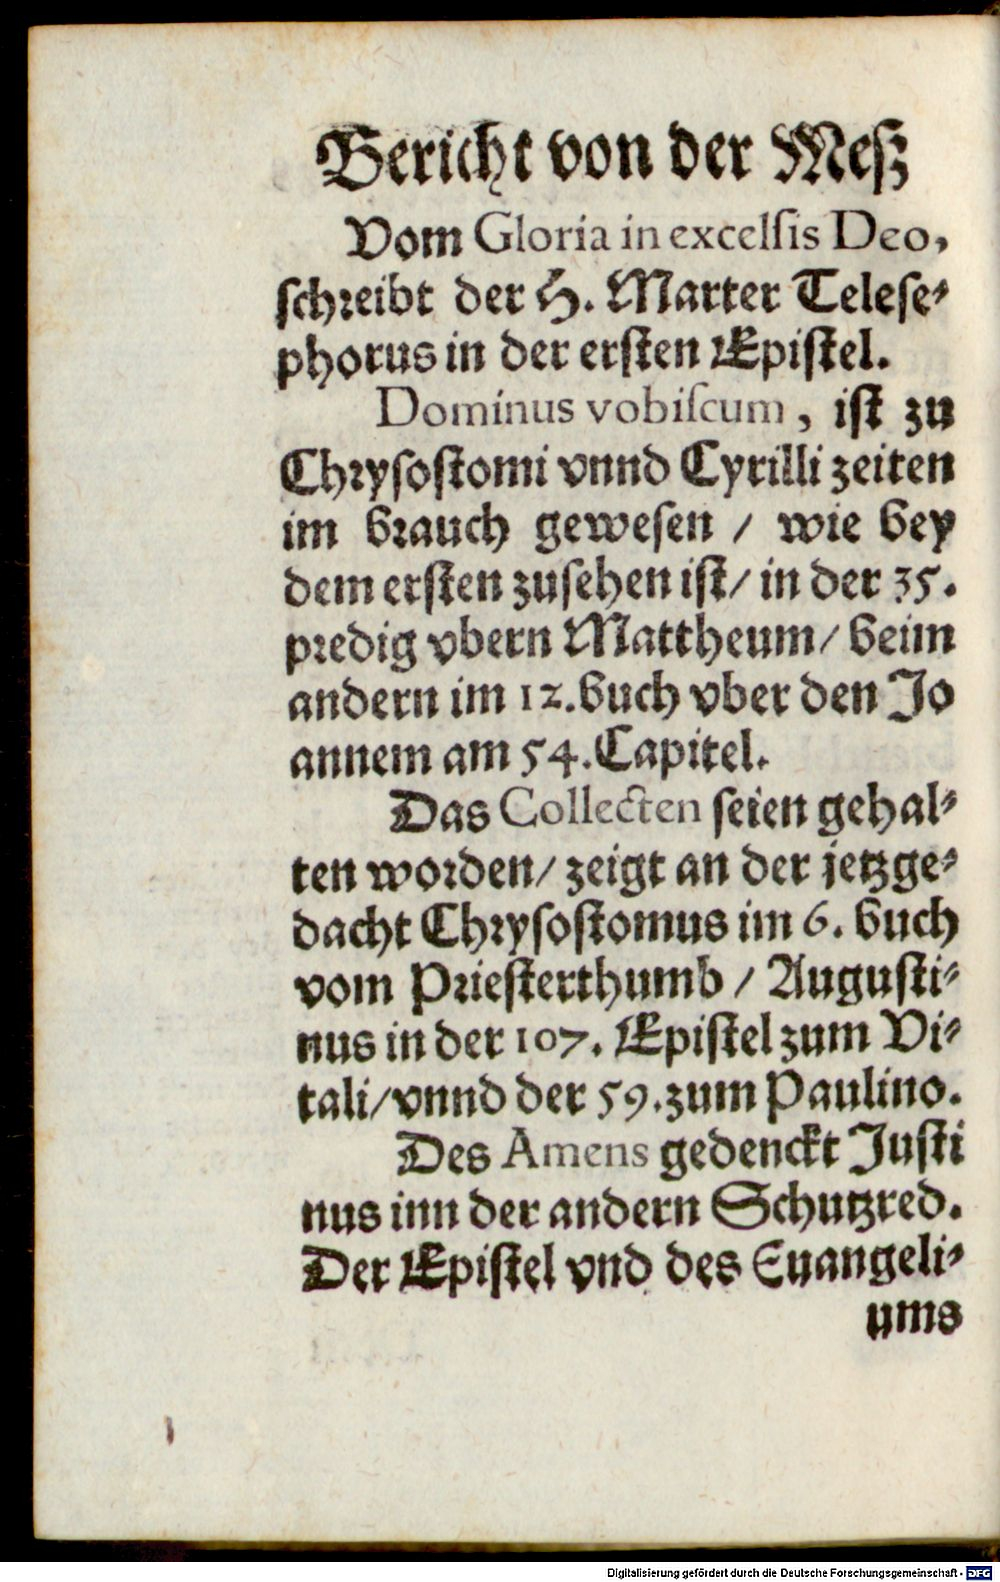 Bericht von der Meß
Vom Gloria in excelſis Deo,
ſchreibt der H. Marter Teleſe⸗
phorus in der erſten Epiſtel.
Dominus vobiſcum, iſt zu
Chryſoſtomi vnnd Cyrilli zeiten
im brauch geweſen / wie bey
dem erſten zuſehen iſt/ in der 35.
predig vbern Mattheum/ beim
andern im 12. buch vber den Jo
annem am 54. Capitel.
Das Collecten ſeien gehal⸗
ten worden/ zeigt an der jetzge⸗
dacht Chryſoſtomus im 6. buch
vom Prieſterthumb / Auguſti⸗
nus in der 107. Epiſtel zum Vi⸗
tali/ vnnd der 59. zum Paulino.
Des Amens gedenckt Juſti
nus inn der andern Schutzred.
Der Epiſtel vnd des Euangeli⸗
ums
Digitalisierung gefördert durch die Deutsche Forschungsgemeinschaft - DFG